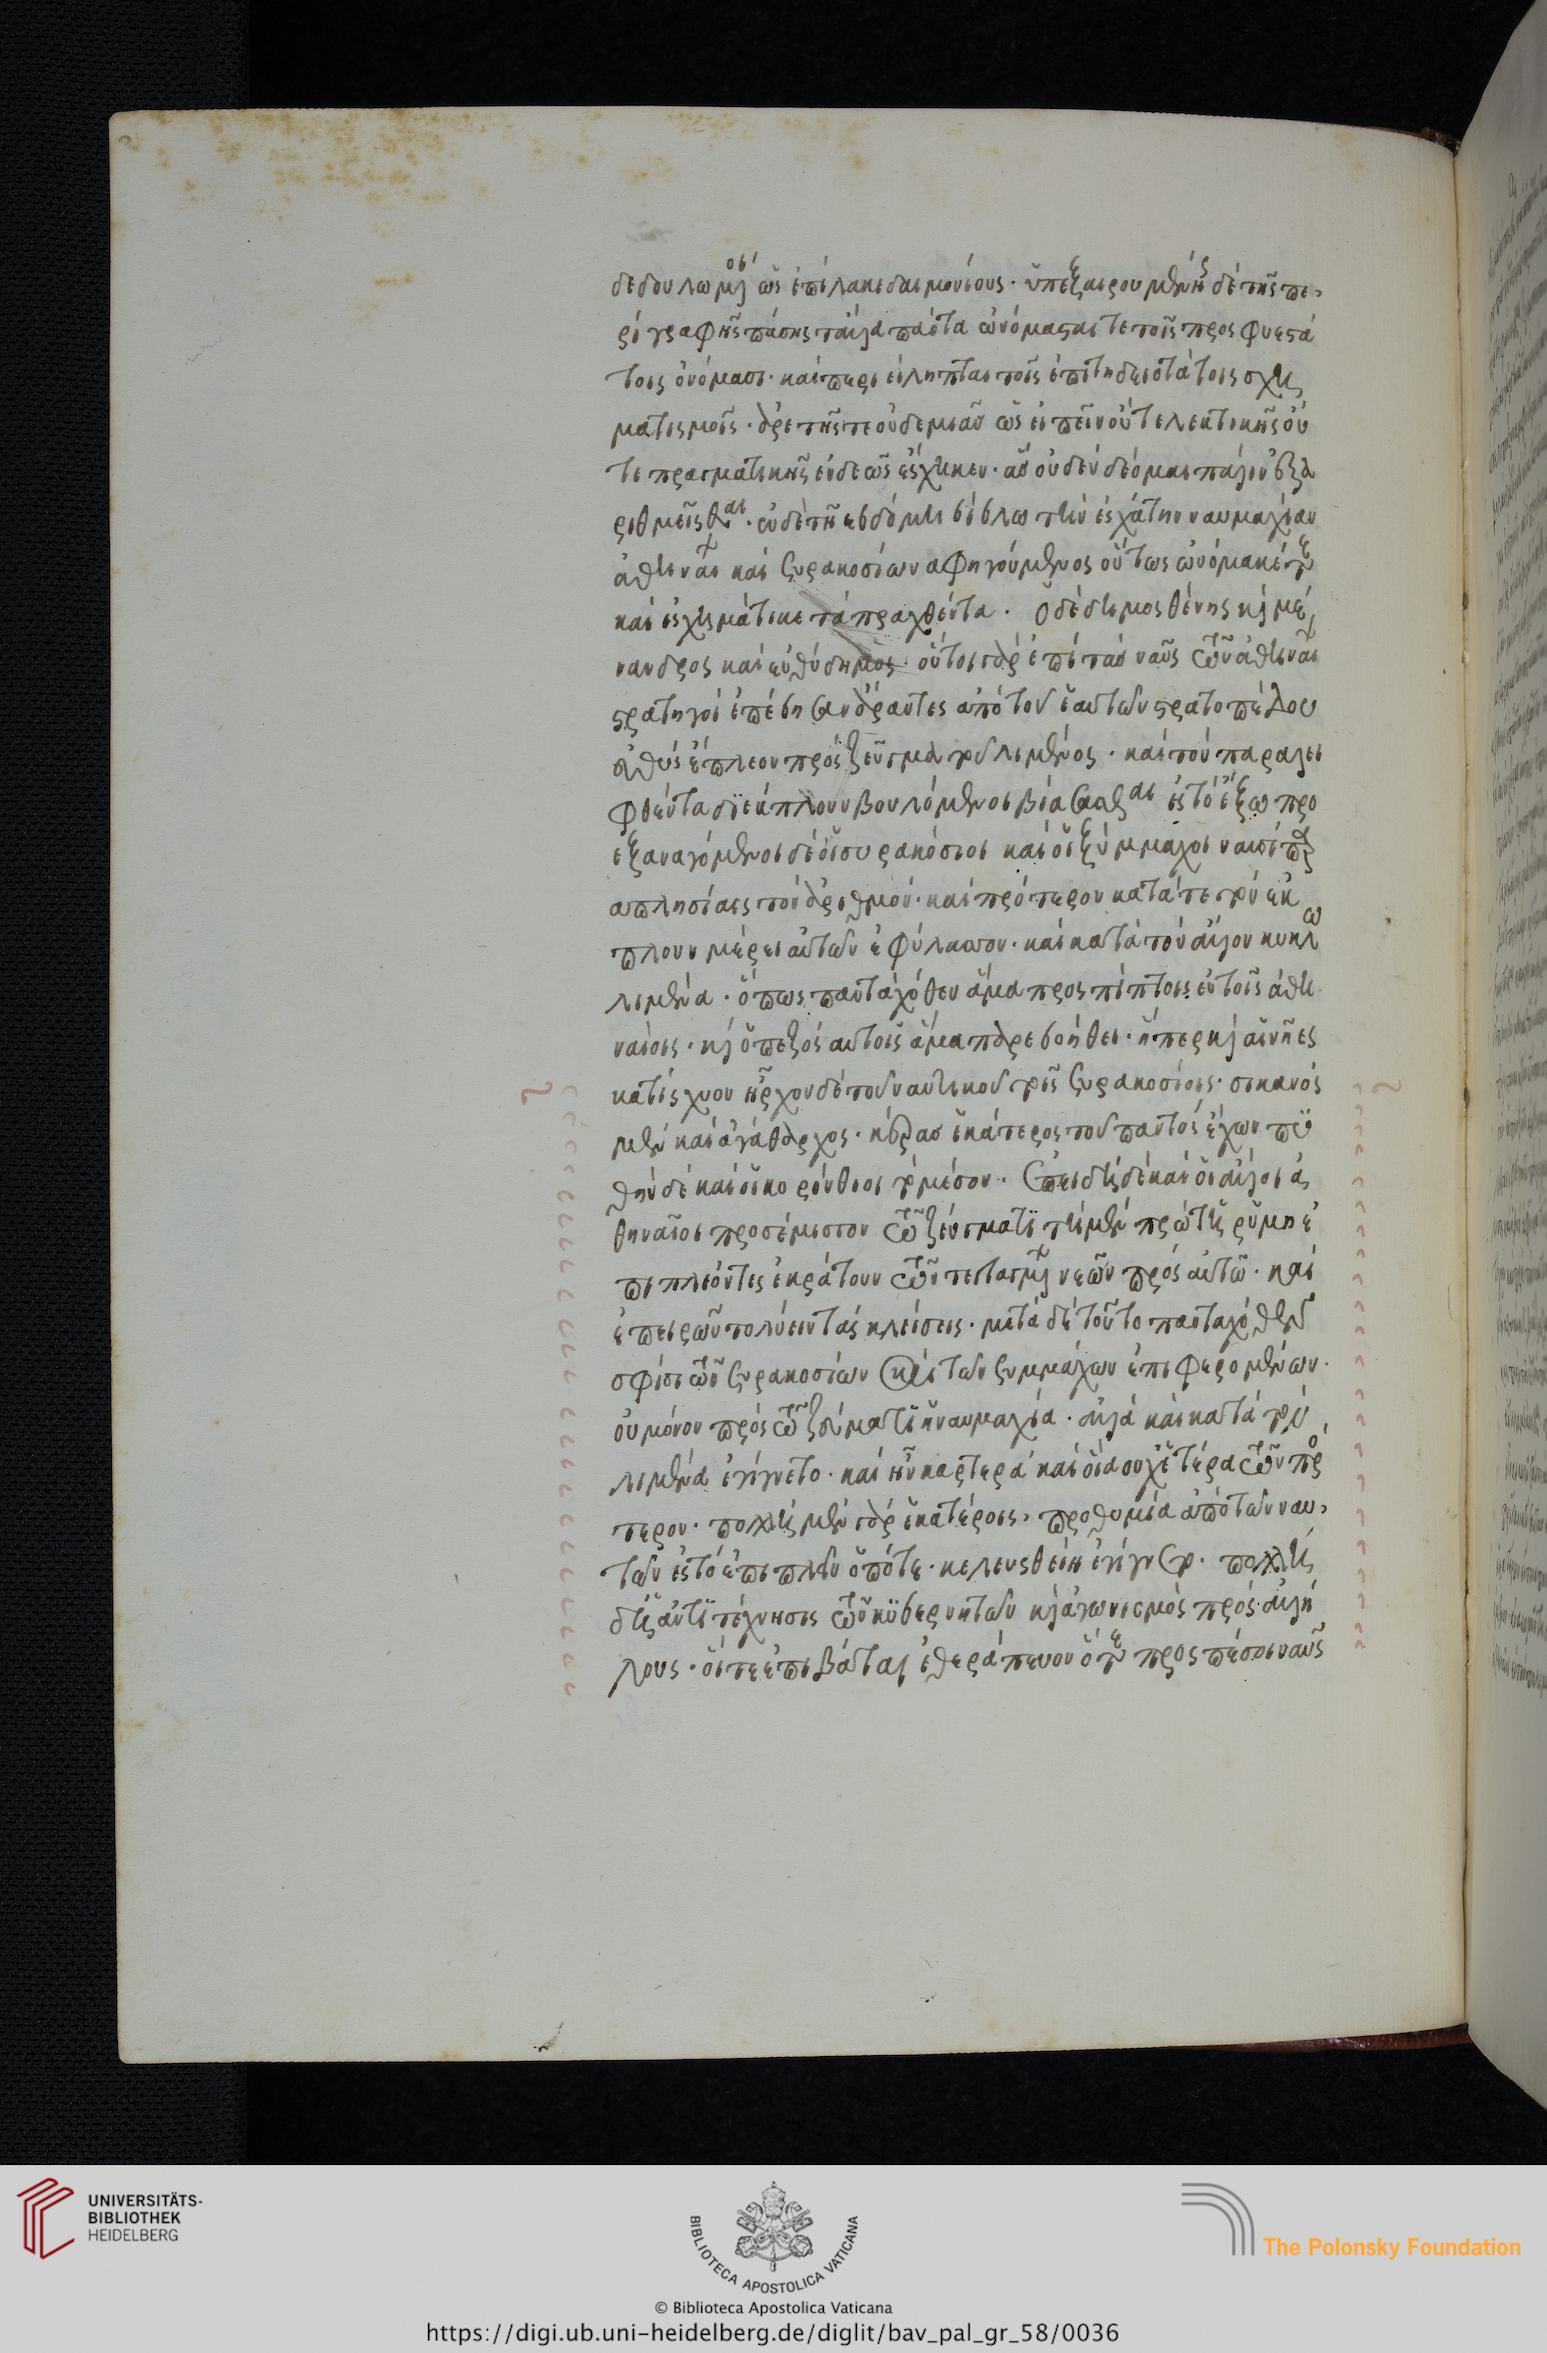 δεδουλωμένοι ὡς ἐπὶ λακεδαιμονίους· ὑπεξαιρουμένης δὲ τῆς πε
ριγραφῆς πάσης τἄλλα πάντα ὠνόμασαί τε τοῖς προσφυεστά
τοις ὀνόμασι· καὶ περιείληπται τοῖς ἐπιτηδειοτάτοις σχη
ματισμοῖς· ἀρετῆς τε οὐδεμιᾶς ὡς εἰπεῖν οὔτε λεκτικῆς οὔ
τε πραγματικῆς ἐνδεῶς ἔσχηκεν· ἃς οὐδὲν δέομαι πάλιν ἐξα
ριθμεῖσθαι· ἐν δὲ τῇ ἑβδόμῃ βίβλω τὴν ἐσχάτην ναυμαχίαν
ἀθηναίων καὶ συρακοσίων ἀφηγούμενος οὕτως ὠνόμακέ τε
καὶ ἐσχημάτικε τὰ πραχθέντα· ὁ δὲ δημοσθένης καὶ μέ
νανδρος καὶ εὐθύδημος· οὗτοι γὰρ ἐπὶ τὰς ναῦς τῶν ἀθηναίων
στρατηγοὶ ἐπέβησαν ἄραντες ἀπὸ τοῦ ἑαυτῶν στρατοπέδου
εὐθὺς ἔπλεον πρὸς ζεῦγμα τοῦ λιμένος· καὶ τὸν παραλει
φθέντα διέκπλουν βουλόμενοι βιάσασθαι ἐς τὸ ἔξω προ
εξαναγόμενοι δὲ οἱ συρακόσιοι καὶ οἱ ξύμμαχοι ναυσὶ πα
απλησίαις τὸν ἀριθμόν· καὶ πρότερον κατά τε τὸν ἔκ
πλουν μέρει αὐτῶν ἐφύλασσον· καὶ κατὰ τὸν ἄλλον κύκλω
λιμένα· ὅπως πανταχόθεν ἅμα προσπίπτοιεν τοῖς ἀθη
ναίοις· καὶ ὁ πεζὸς αὐτοῖς ἅμα παρεβοήθει· ᾗπερ καὶ αἱ νῆες
κατίσχυον ἦρχον δὲ τοῦ ναυτικοῦ τοῖς συρακοσίοις· σικανὸς
μὲν καὶ ἀγάθαρχος· κέρας ἑκάτερος τοῦ παντὸς ἔχων πυ
θὴν δὲ καὶ οἱ κορίνθιοι τὸ μέσον· ἐπειδὴ δὲ καὶ οἱ ἄλλοι ἀ
θηναῖοι προσέμισγον τῶ ζεύγματι τῇ μὲν πρώτη ῥύμη ἐ
πιπλέοντες ἐκράτουν τῶν τεταγμένων νεῶν πρὸς αὐτῶ· καὶ
ἐπειρῶντο λύειν τὰς κλείσεις· μετὰ δὲ τοῦτο πανταχόθεν
σφίσι τῶν συρακοσίων καὶ τῶν ξυμμάχων ἐπιφερομένων·
οὐ μόνον πρὸς τῶ ζεύγματι ἡ ναυμαχία· ἀλλὰ καὶ κατὰ τὸν
λιμένα ἐγίγνετο· καὶ ἦν καρτερὰ καὶ οἵα οὐχ ἑτέρα τῶν πρό
τερον· πολλὴ μὲν γὰρ ἑκατέροις, προθυμία ἀπὸ τῶν ναυ
τῶν ἐς τὸ ἐπιπλεῖν ὁπότε· κελευσθείη ἐγίγνετο· πολλὴ
δὲ ἀντιτέχνησις τῶν κυβερνητῶν καὶ ἀγωνισμὸς πρὸς ἀλλή
λους· οἵ τε ἐπιβάται ἐθεράπευον ὅτε προσπέσοι ναῦς
UNIVERSITÄTS-
BIBLIOTHEK
HEIDELBERG
BIBLIOTECA APOSTOLICA VATICANA
The Polonsky Foundation
© Biblioteca Apostolica Vaticana
https://digi.ub.uni-heidelberg.de/diglit/bav_pal_gr_58/0036